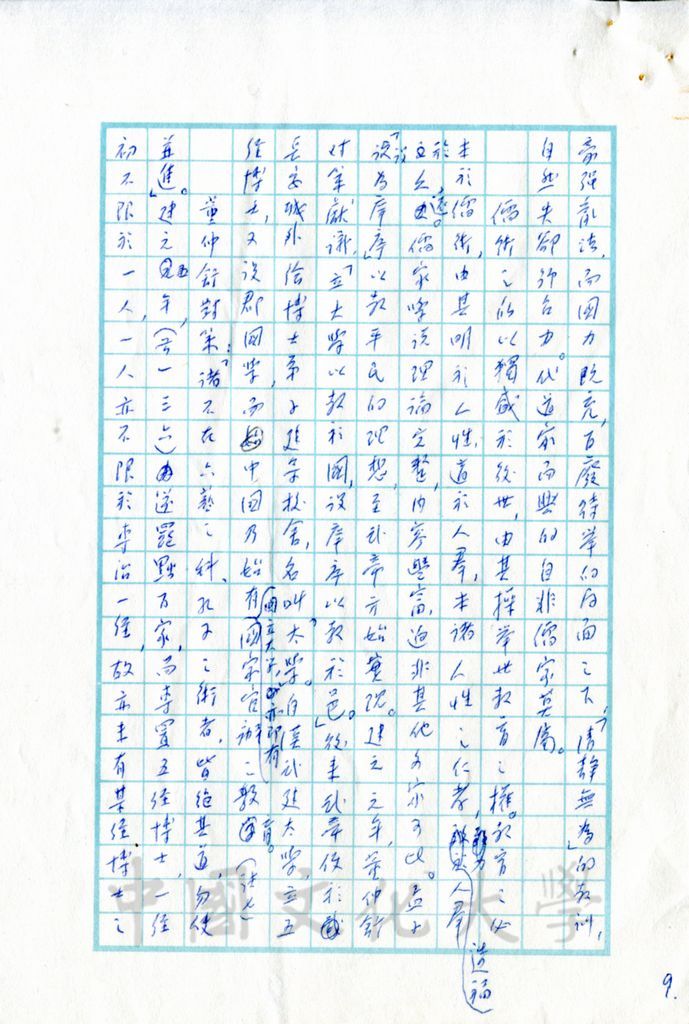 豪強亂法,而國力既充,百廢待舉的局面之下,「清靜無為」的教訓,
自然失卻號召力。代道家而興的自非儒家莫屬。
儒術之所以獨盛於後世,由其操舉世教育之權。教育之必
本於儒術,由其明於人性,道於人羣,本諸人性之仁孝,努力人羣造福
立論。儒家學說理論完整,內容豐富,迥非其他各家可比。孟子
「設為庠序」以教平民的理想,至武帝方始實現。建元元年,董仲舒
對策獻議,「立大學以教於國,設庠序以教於邑。」後來武帝便於
長安城外給博士弟子建築校舍,名叫「太學」。自漢武建太學,立五
經博士,又設郡國學,而中國乃始有(國立大學,亦即有)國家官辦之教育。(註七)
董仲舒對策:「諸不在六藝之科、孔子之術者,皆絕其道,勿使
並進。」建元五年,(公元一三六)遂罷黜百家,而專置五經博士,一經
初不限於一人,一人亦不限於專治一經,故亦未有某經博士之
9.
中國文化大學